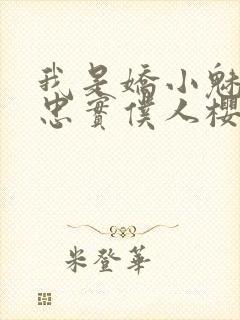 我是嬌小魅
忠實僕人櫻
米登華